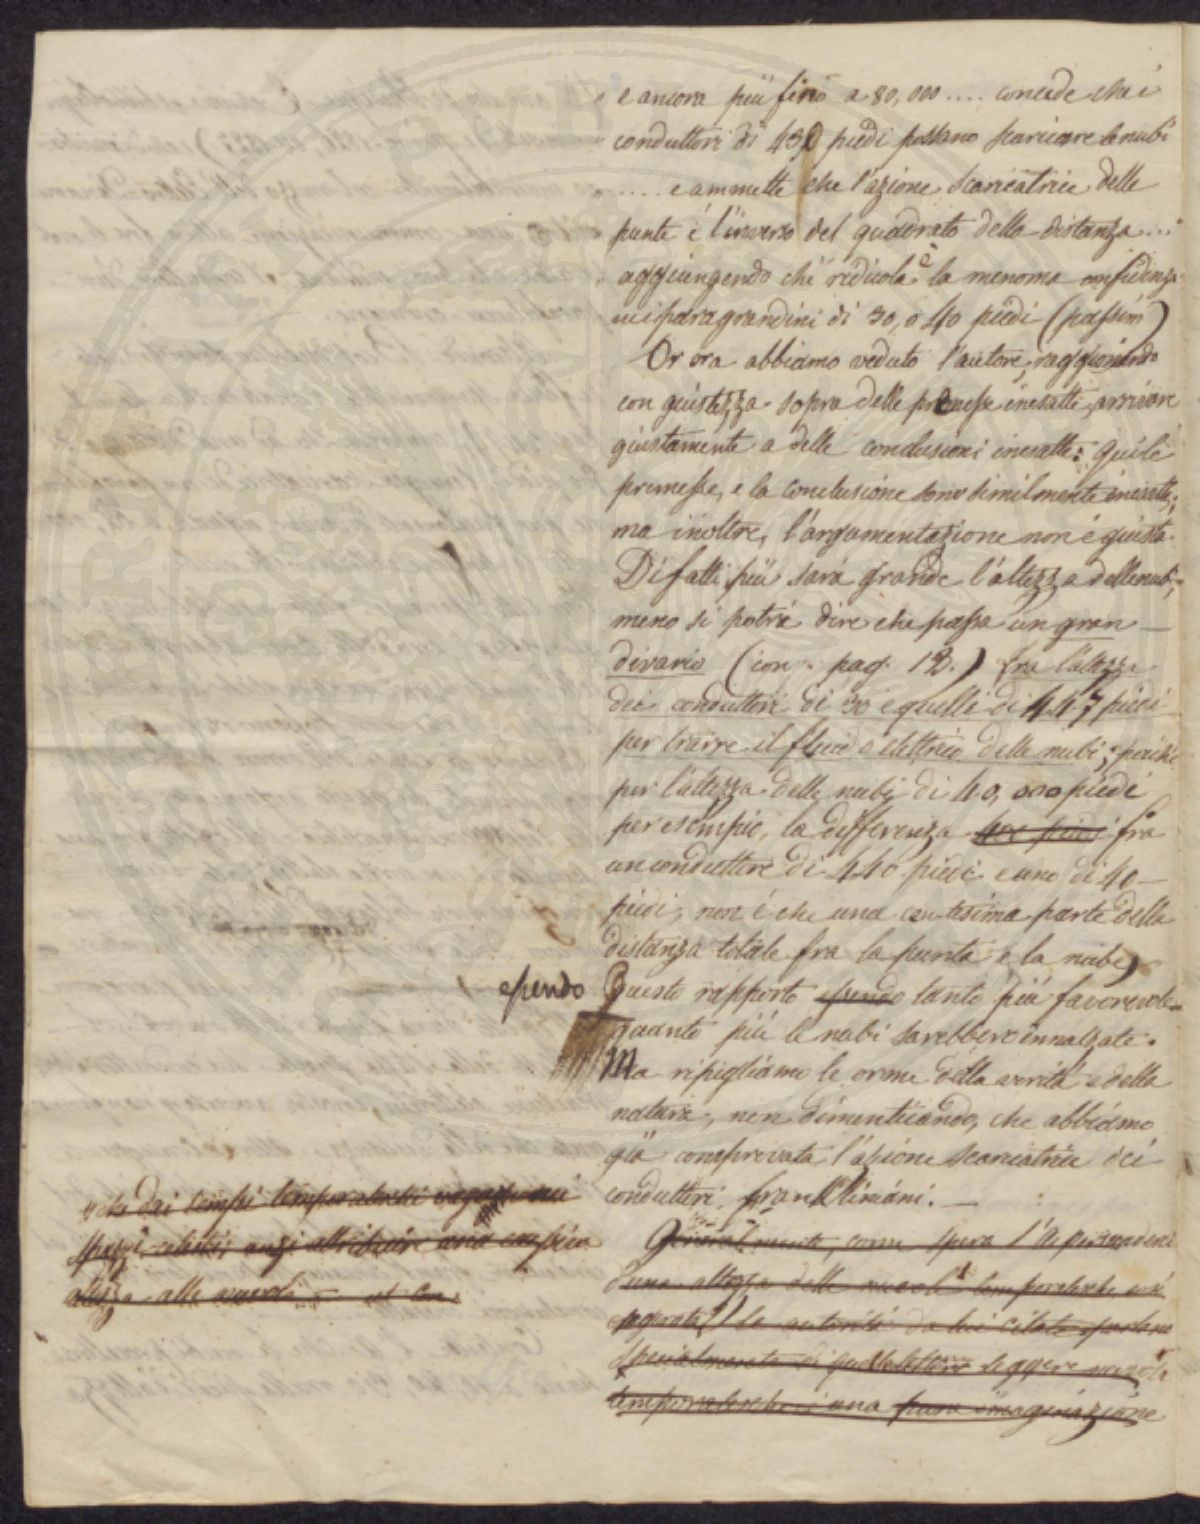 e ancora più fino a 80,000 .... concede che i
conduttori di 430 piedi possano scaricare le nubi
.... e ammette che l'azione scaricatrice delle
punte è l'inverso del quadrato della distanza ...
aggiungendo che ridicola è la menoma confidenza
nei paragrandini di 30, o 40 piedi (passim)
Or ora abbiamo veduto l'autore, raggionando
con giustezza sopra delle premesse inesatte, arrivare
giustamente a delle conclusioni inesatte: qui le
premesse, e la conclusione sono similmente inesatte;
ma inoltre, l'argomentazione non è giusta.
Difatti, più sarà grande l'altezza delle nubi,
meno si potrà dire che passa un gran
divario (con. pag. 12.) fra l'altezza
dei conduttori di 30 e quelli di 447 piedi
per trarre il fluido elettrico delle nubi; perché
per l'altezza delle nubi di 40,000 piedi
per esempio, la differenza 400 piedi fra
un conduttore di 440 piedi e uno di 40
piedi, non é che una centesima parte della
distanza totale fra la punta e la nube,
essendo
Questo rapporto essendo tanto più favorevole
quanto più le nubi sarebbero innalzate.
Ma ripigliamo le orme della verità e della
natura, non dimenticando, che abbiamo
già comprovata l'azione scaricatrice dei
conduttori frankliniani.
Generalmente, come spera l'A. persuaderci
d'una altezza delle nuvole temporalesche così
esagerata, le autorità da lui citate parlano
specialmente di leggere nuvole
temporalesche è una pura imaginazione
dei tempi temporaleschi
spazj celesti, anzi attribuire una
altezza alle nuvole